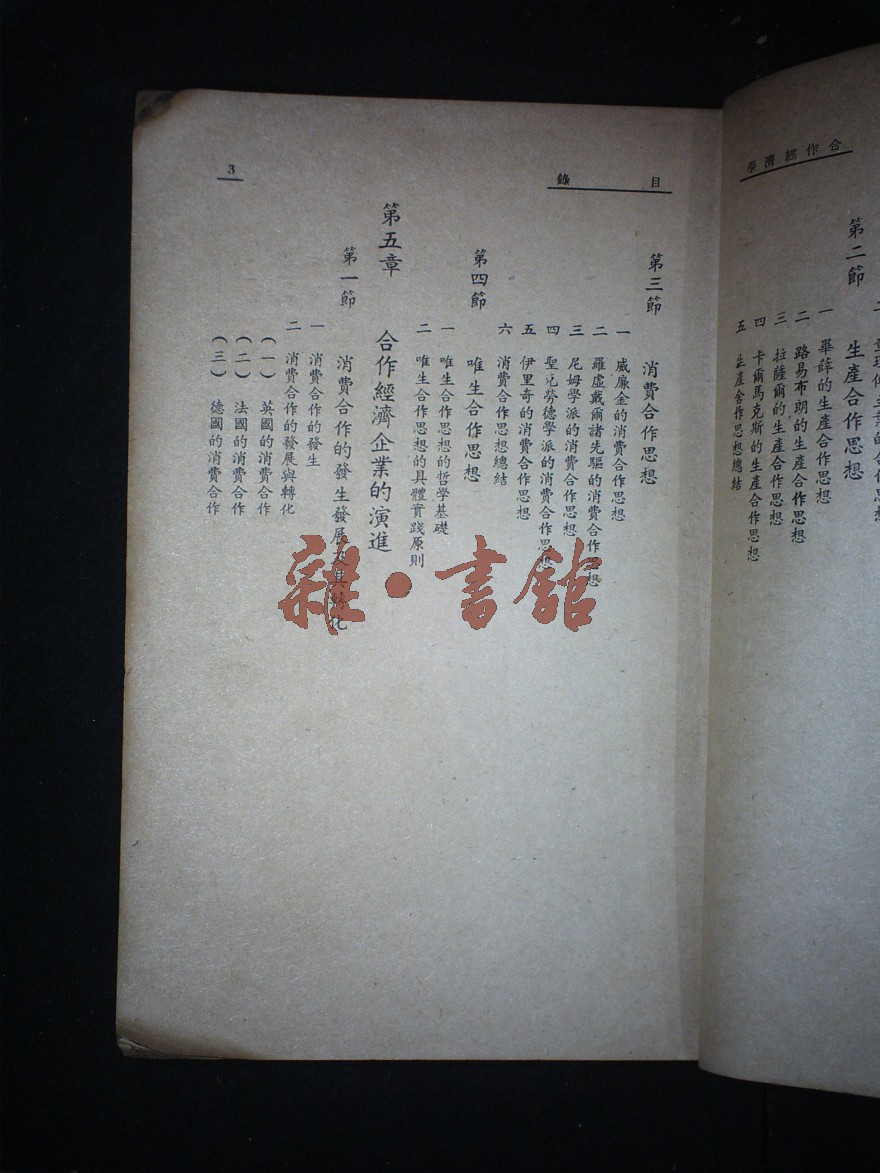 合作經濟學
第二節　生產合作思想
一　畢薛的生產合作思想
二　路易布朗的生產合作思想
三　拉薩爾的生產合作思想
四　卡爾馬克斯的生產合作思想
五　生產合作思想總結
目錄
3
第三節　消費合作思想
一　威廉金的消費合作思想
二　羅虛戴爾諸先驅的消費合作思想
三　尼姆學派的消費合作思想
四　聖克勞德學派的消費合作思想
五　伊里奇的消費合作思想
六　消費合作思想總結
第四節　唯生合作思想
一　唯生合作思想的哲學基礎
二　唯生合作思想的具體實踐原則
第五章　合作經濟企業的演進
第一節　消費合作的發生發展及其轉化
一　消費合作的發生
二　消費合作的發展與轉化
（一）英國的消費合作
（二）法國的消費合作
（三）德國的消費合作
雜·書館